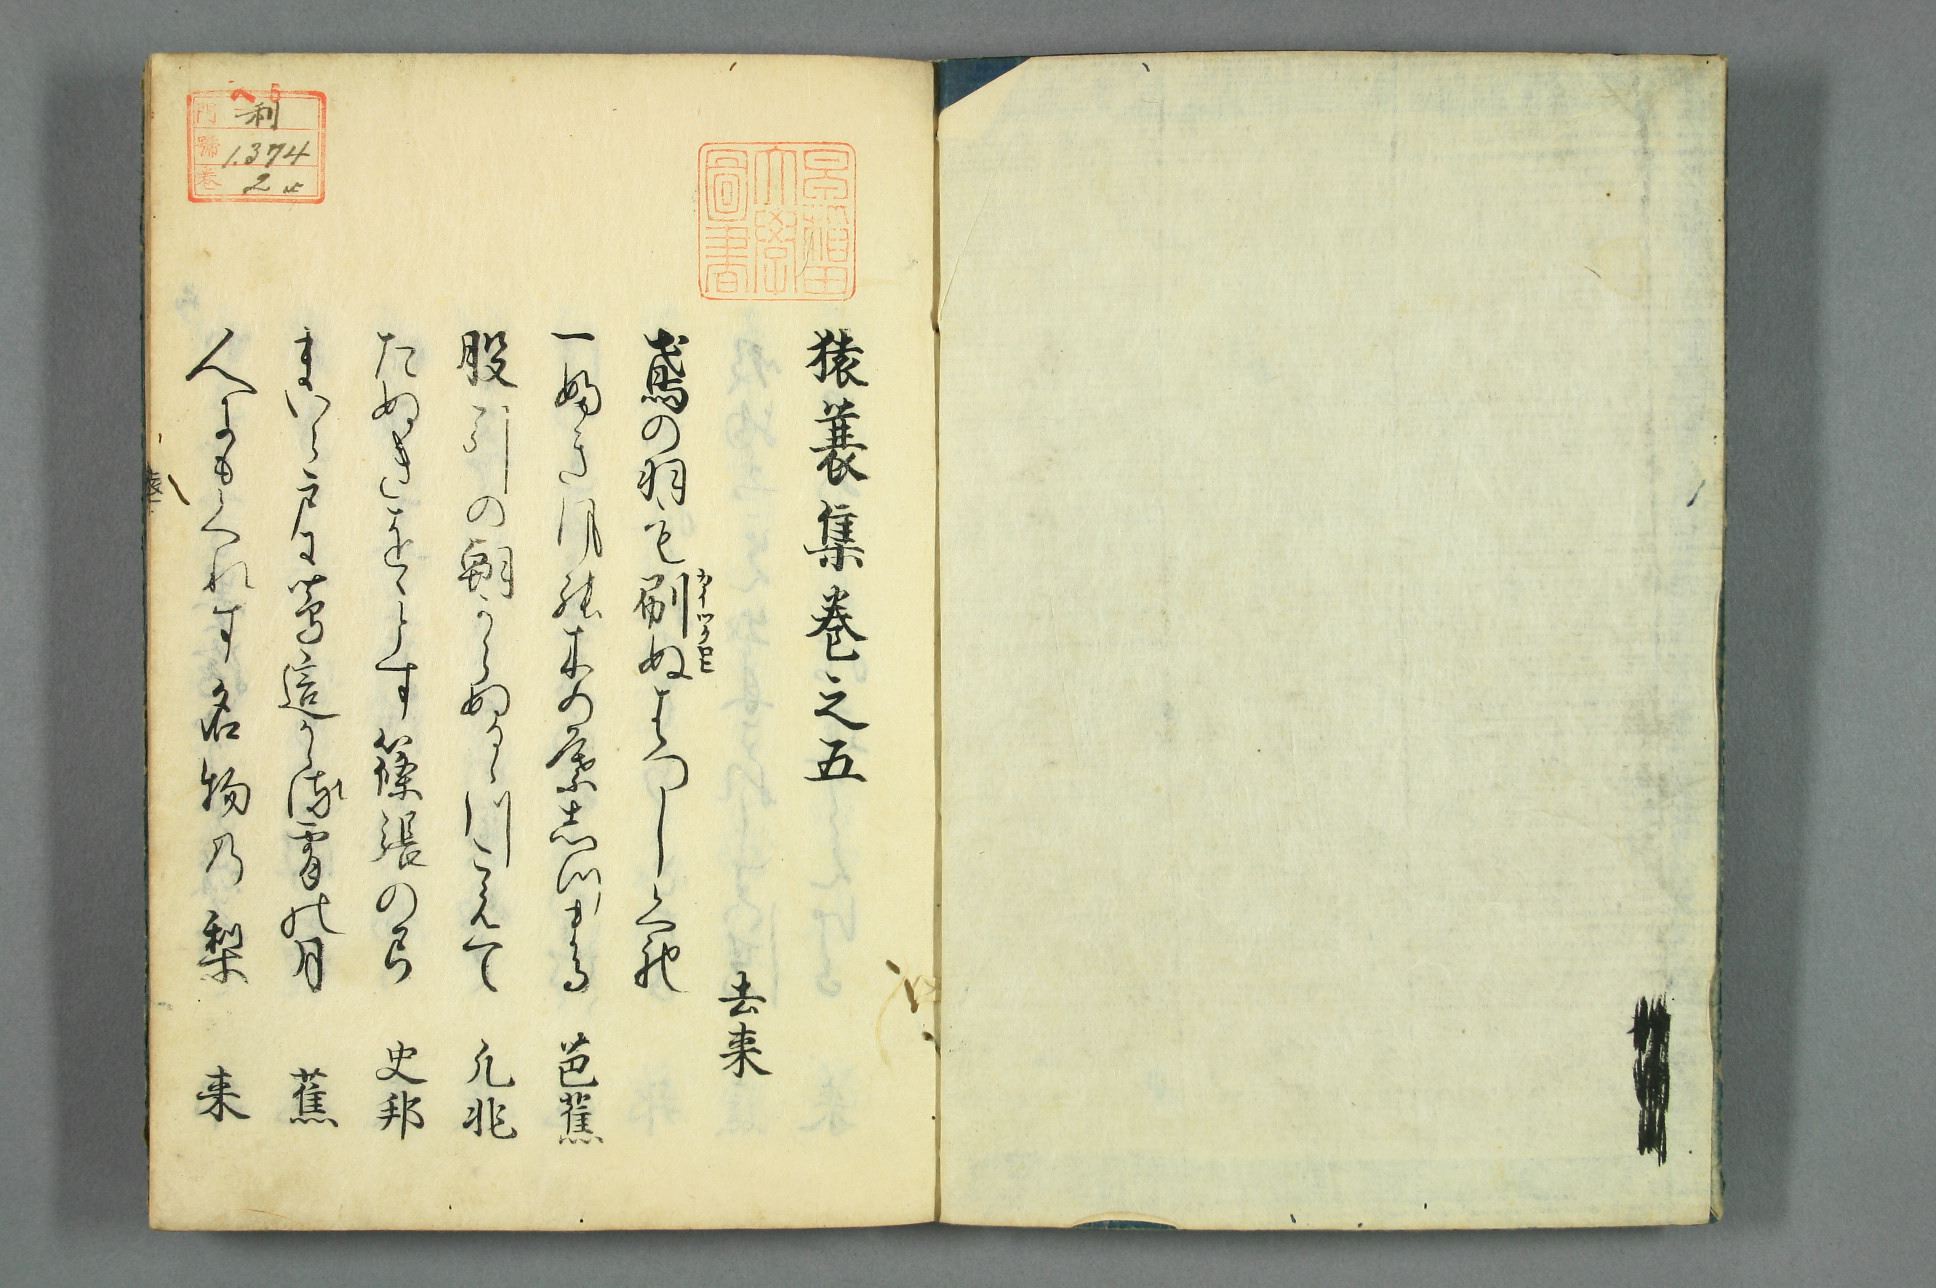 猿蓑集巻之五
去来
鳶の羽も刷ぬはつしくれ
カイツクロヒ
一ふき風の木の葉しつまる
芭蕉
股引の朝からぬるゝ川こえて
凡兆
たぬきをゝとす篠張の弓
史邦
まいら戸に蔦這かゝる宵の月
蕉
人にもくれす名物の梨
来
早稲田大學圖書
門 号 巻
利
1374
2